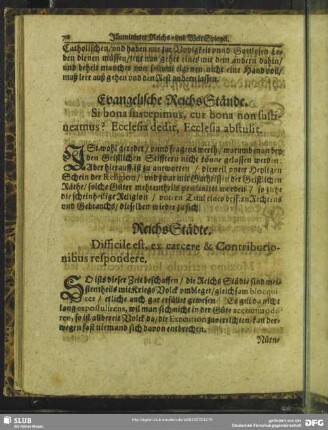 Illuminirter Reichs- und Welt-Spiegel.
Catholischen, und haben nur zur Uppigkeit und Gottlosen Leben
dienen müssen, jetzt nun gehet eines mit dem andern dahin,
und behelt mancher von seinem eigenen nicht eine Hand voll,
muß leer auß gehen und den Rest andern lassen.
Evangelische Reichs Stände.
Si bona suscepimus, cur bona non susti-
neamus? Ecclesia dedit, Ecclesia abstulit.
ISt wohl geredet, und fragens werth, warumb man bey
den Geistlichen Stifftern nicht könne gelassen werden.
Aber hierauß ist zu antworten, dieweil unter Heiligen
Schein der Religion, und zwar mit Gutheissen der Geistlichen
Räthe, solche Güter mehrentheils
die scheinheilige Religion,
und Gebrauchs, dieselben wieder zu sich.
Reichs Städte.
Difficile est, ex carcere & Contributio-
nibus respondere.
SO ists dieser Zeit beschaffen, die Reichs Städte sind mei-
stentheils mit Kriegs Volck umbleget, gleichsam blocqui-
ret, etliche auch gar erfüllet gewesen.
lang expostulirens, wil man sich nicht in der Güte accommodi-
ren, so ist allbereit Volck da, die Execution zuverrichten, kan der-
wegen fast niemand sich davon entbrechen.
Nürn-
SLUB
http://digital.slub-dresden.de/
DFG